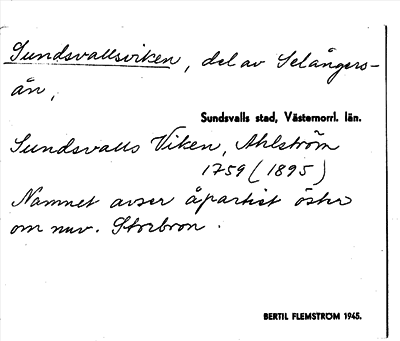 Sundsvallsviken, del av Selångers-
ån,
Sundsvalls stad, Västernorrl. län.
Sundsvalls Viken, Ahlström
1759 (1895)
Namnet avser åpartiet öster
om nuv. Storbron.
BERTIL FLEMSTRÖM 1945.